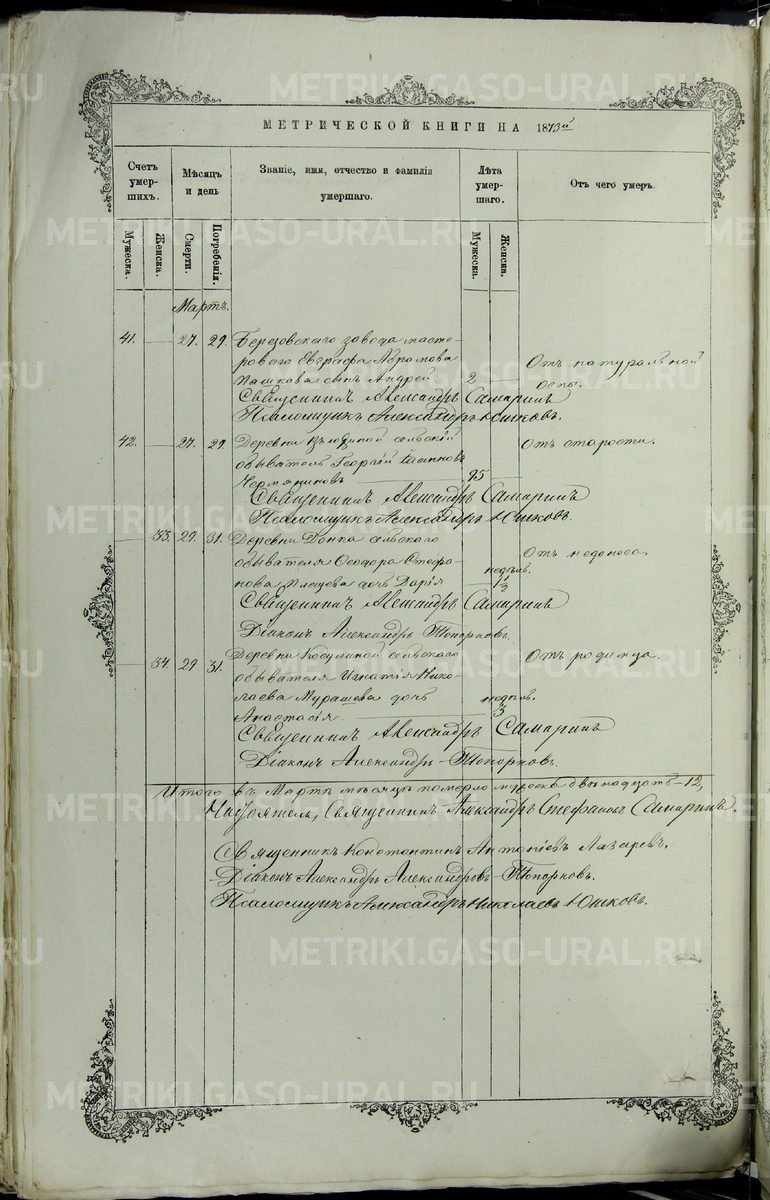 METRIKI.GASO-URAL.RU
МЕТРИЧЕСКОЙ КНИГИ НА 1873й
Счетъ умершихъ.
Мѣсяцъ и день
Званіе, имя, отчество и фамилія умершаго.
Лѣта умершаго.
Отъ чего умеръ.
Мужеска.
Женска.
Смерти.
Погребенія.
Мужеска.
Женска.
Мартъ.
41. 27. 29. Березовскаго завода масте-
роваго Евграфа Абрамова
Пашкова сынъ Андрей 2
Отъ натуральной
оспы.
Священникъ Александръ Самаринъ
Псаломщикъ Александръ Юшковъ.
42. 27. 29. Деревни сельскій
обыватель Георгій Іоанновъ
95
Отъ старости.
Священникъ Александръ Самаринъ
Псаломщикъ Александръ Юшковъ.
33. 29. 31. Деревни сельскаго
обывателя Ѳеодора Стефа-
нова Плещева дочь Дарія
недѣль.
Отъ недоноса.
Священникъ Александръ Самаринъ
Діаконъ Александръ Топорновъ.
34. 29 31. Деревни Косулиной сельскаго
обывателя Игнатія Нико-
лаева Мурашева дочь
Анастасія
недѣль.
3
Отъ родимца.
Священникъ Александръ Самаринъ
Діаконъ Александръ Топорновъ.
Итого въ Мартѣ мѣсяцѣ померло мужеска двѣнадцать–12,
Настоятель, Священникъ Александръ Стефановъ Самаринъ.
Священникъ Константинъ Антоніевъ Лазаревъ.
Діаконъ Александръ Александровъ Топорновъ.
Псаломщикъ Александръ Николаевъ Юшковъ.